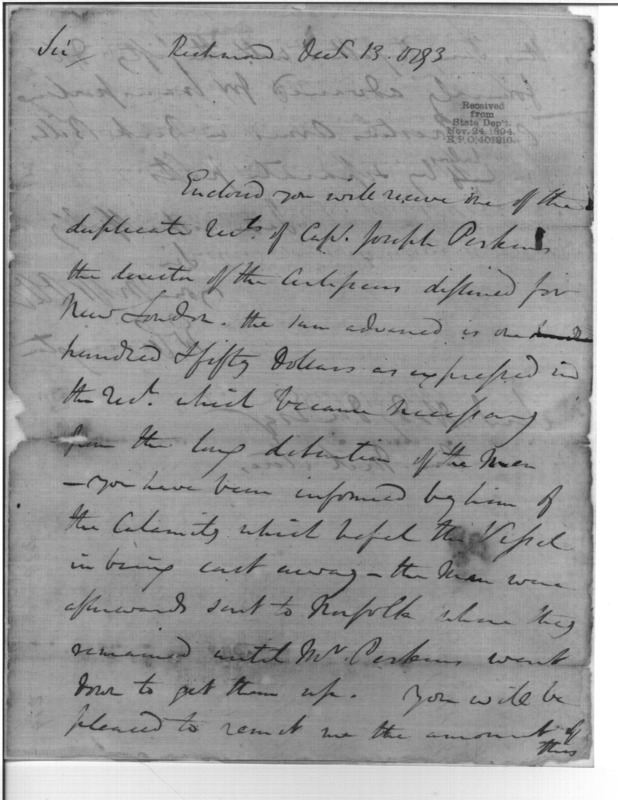 Sir Richmond Decr. 13. 1793
Received
from
State Dep't.
Nov. 24, 1894.
Enclosed you will receive one of the
duplicate rects. of Capt. Joseph Perkins
the director of the Artificers destined for
New London. the sum advanced is one
hundred & fifty Dollars as expressed in
the rect. which became necessary
from the long detention of the Men
– you have been informed by him of
the Calamity which befel the Vessel
in being cast away – the Men were
afterwards sent to Norfolk where they
remained until Mr. Perkins went
down to get them up. You will be
pleased to remit me the amount of
this